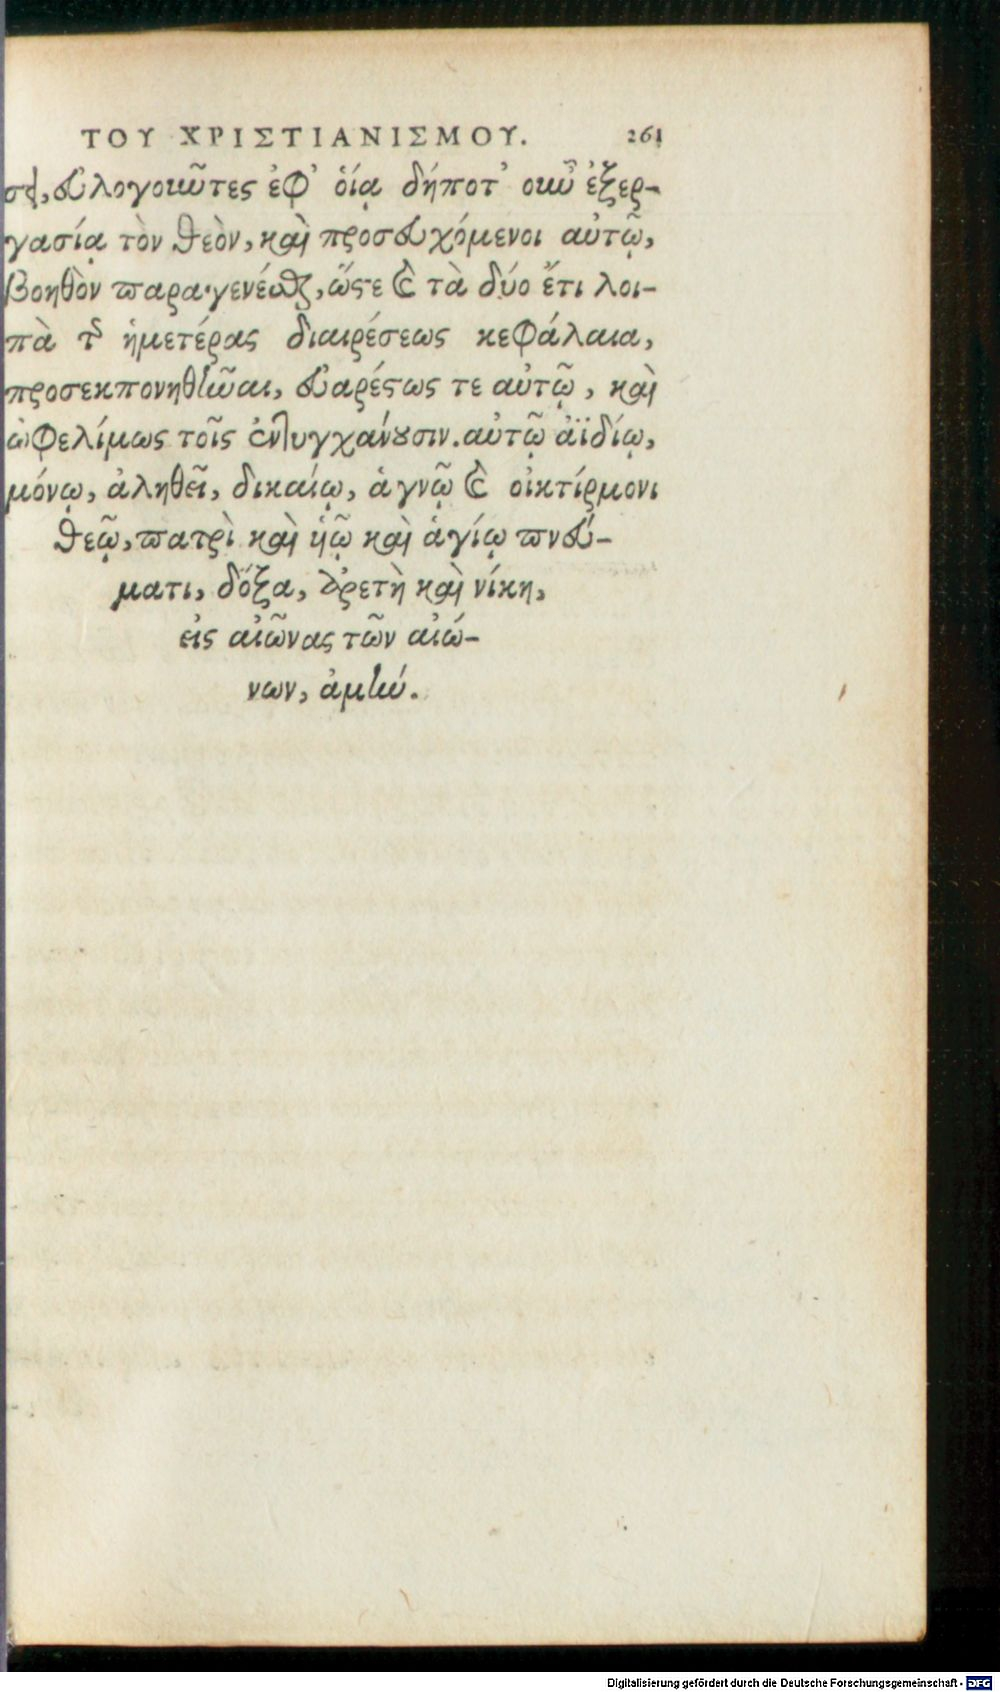 ΤΟΥ ΧΡΙΣΤΙΑΝΙΣΜΟΥ. 261
εὐλογοῦντες ἐφ᾽ οἵᾳ δήποτ᾽ οὖν ἐξερ-
γασίᾳ τὸν θεὸν, καὶ προσευχόμενοι αὐτῷ,
βοηθὸν παραγενέσθαι, ὥστε καὶ τὰ δύο ἔτι λοι-
πὰ τῆς ἡμετέρας διαιρέσεως κεφάλαια,
προσεκπονηθῆναι, εὐαρέστως τε αὐτῷ, καὶ
ὠφελίμως τοῖς ἐντυγχάνουσιν. αὐτῷ ἀϊδίῳ,
μόνῳ, ἀληθεῖ, δικαίῳ, ἁγνῷ καὶ οἰκτίρμονι
θεῷ, πατρὶ καὶ ὑῷ καὶ ἁγίῳ πνεύ-
ματι, δόξα, ἀρετὴ καὶ νίκη,
εἰς αἰῶνας τῶν αἰώ-
νων, ἀμήν.
Digitalisierung gefördert durch die Deutsche Forschungsgemeinschaft - DFG